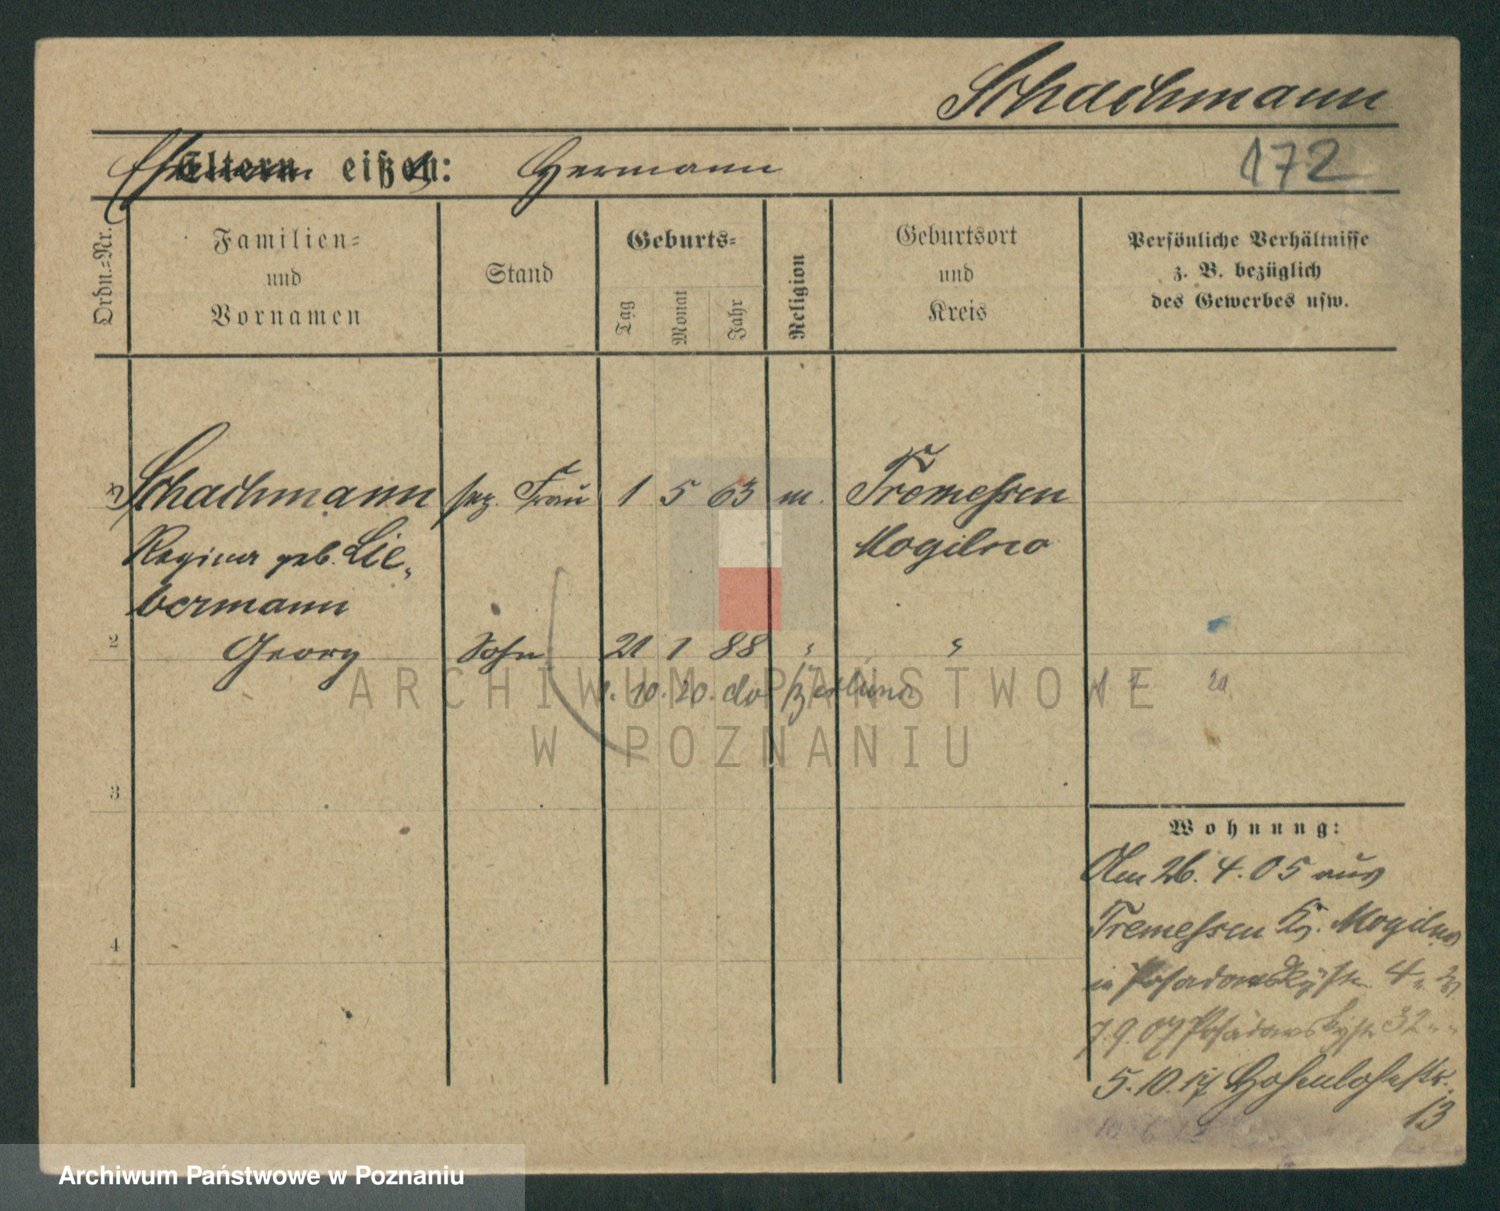 Schachmann
172
Ehemann
Eltern eißen: Hermann
Ordn.-Nr.
Familien-
und
Vornamen
Stand
Geburts-
Tag
Monat
Jahr
Religion
Geburtsort
und
Kreis
Persönliche Verhältnisse
z. B. bezüglich
des Gewerbes usw.
Schachmann Frau 1 5 63 m. Tremessen
Regina geb. Lie- Mogilno
bermann
2 Georg Sohn 21 1 88 " "
1. 10. 20. do Berlin
20
3
4
Wohnung:
Am 26. 4. 05 aus
Tremessen Kr. Mogilno
in Posadowskystr. 4
7.9.07 Posadowskystr. 32
5.10.17 Hohenlohestr.
13
ARCHIWUM PAŃSTWOWE
W POZNANIU
Archiwum Państwowe w Poznaniu